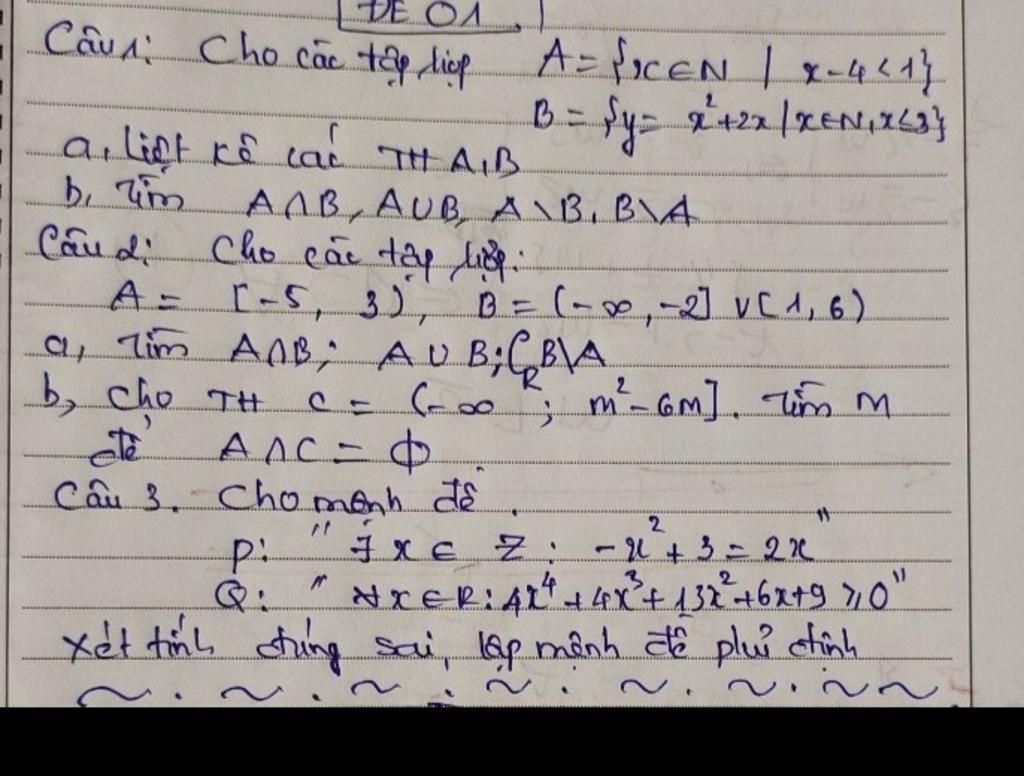 ĐỀ 01.
Câu 1: Cho các tập hợp A = {x∈N / x-4<1}
B = {y= x²+2x / x∈N, x≤3}
a, liệt kê các TH A, B
b, Tìm A∩B, A∪B, A\B, B\A
Câu 2: Cho các tập hợp:
A = [-5, 3), B = (-∞, -2] ∪ [1, 6)
a, Tìm A∩B; A∪B; C_R B\A
b, cho TH C = (-∞; m²-6m]. Tìm m
để A∩C = ϕ
Câu 3. Cho mệnh đề.
P: " ∃x ∈ Z: -x²+3 = 2x"
Q: " ∀x∈R: 4x⁴+4x³+13x²+6x+9 ≥0"
Xét tính đúng sai, lập mệnh đề phủ định